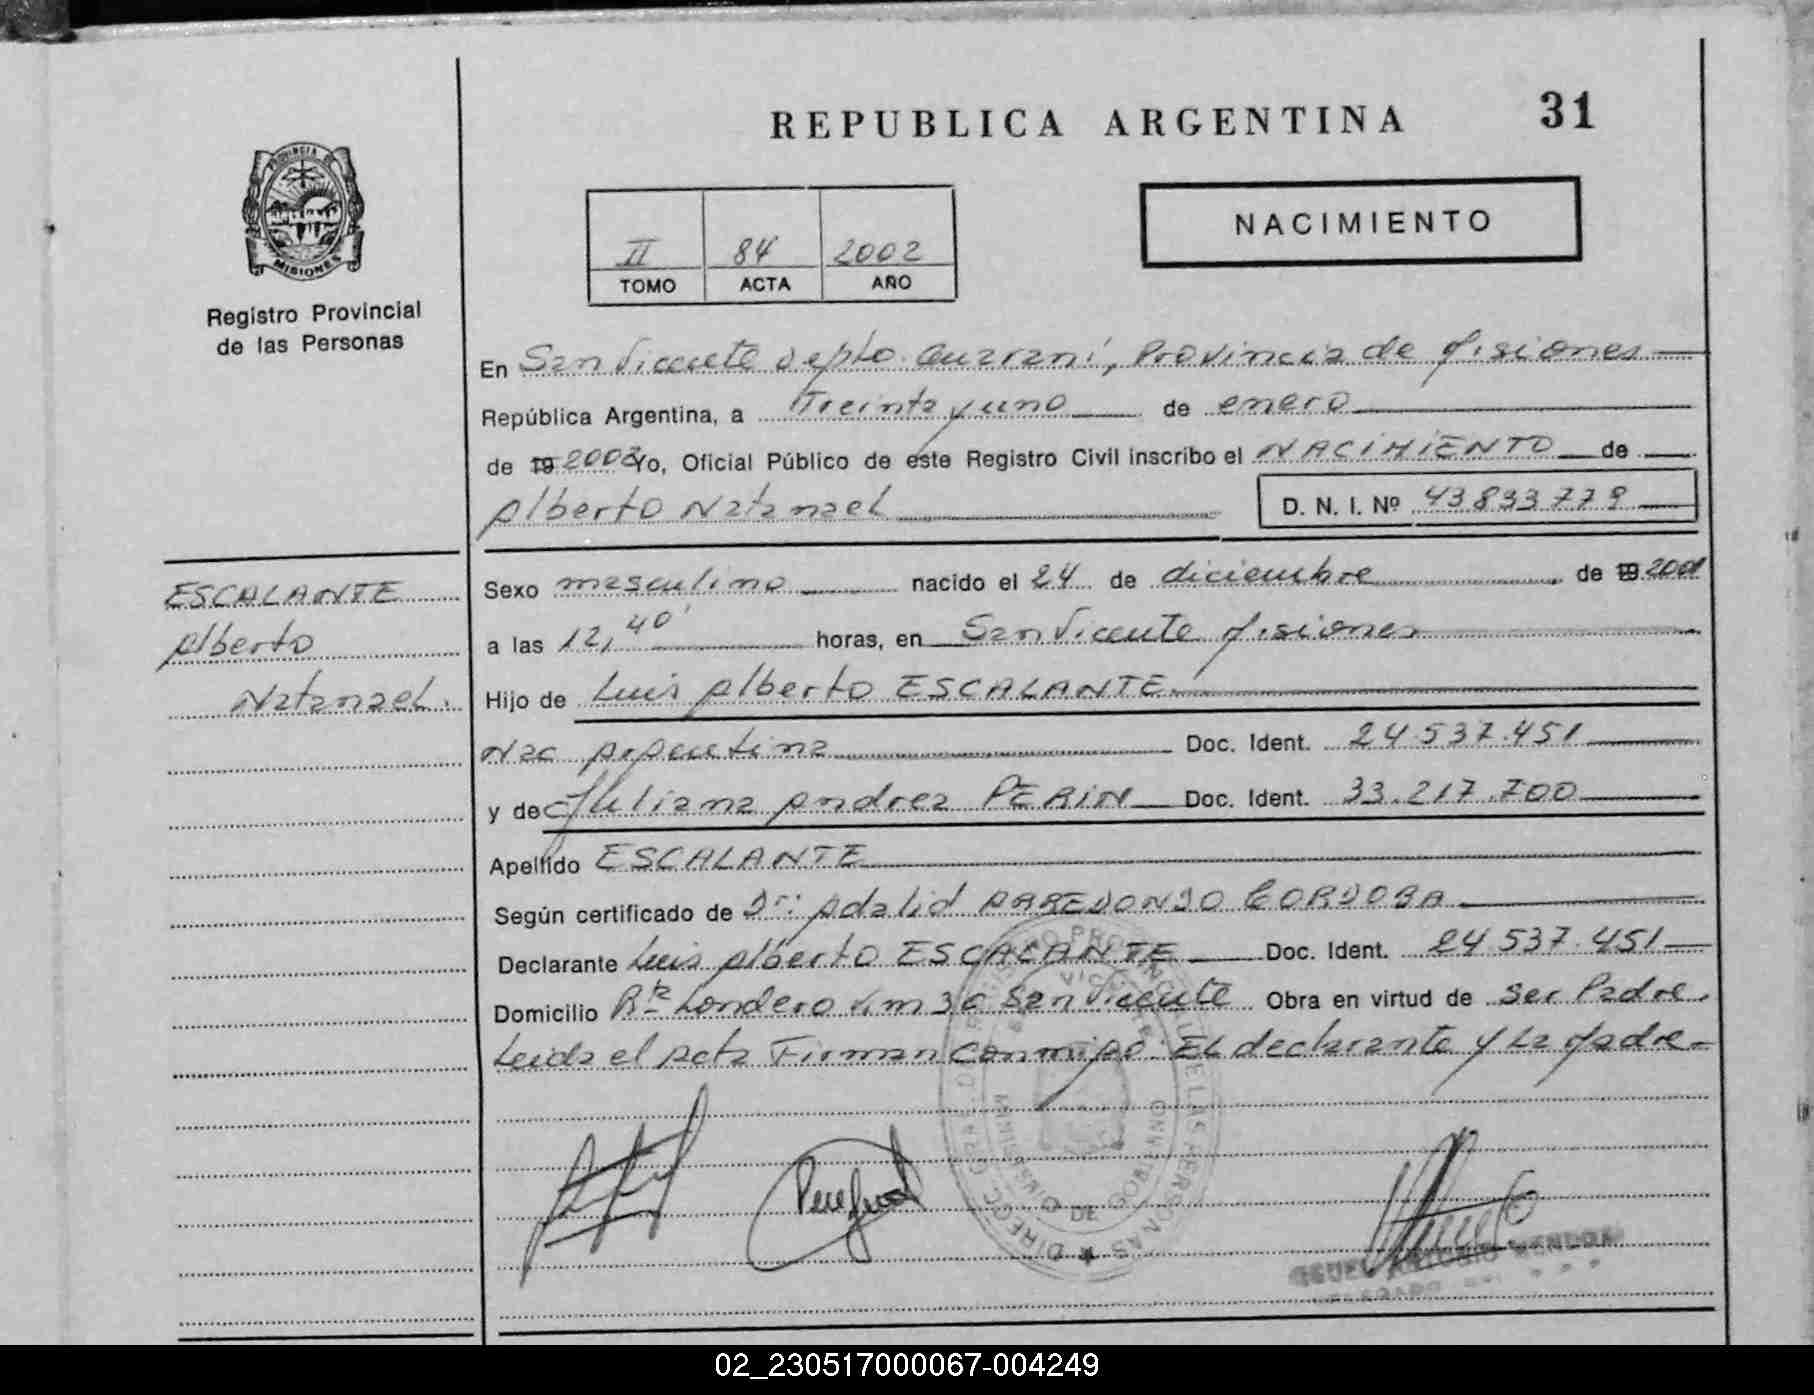 REPUBLICA ARGENTINA 31
PROVINCIA DE
MISIONES
Registro Provincial
de las Personas
II 84 2002
TOMO ACTA AÑO
NACIMIENTO
En San Vicente Depto. Guaraní, Provincia de Misiones
República Argentina, a Treinta y uno de enero
de 19 2002 Yo, Oficial Público de este Registro Civil inscribo el NACIMIENTO de
Alberto Natanael D. N. I. Nº 43833779
ESCALANTE
Alberto
Natanael.
Sexo masculino nacido el 24 de diciembre de 19 2001
a las 12,40' horas, en San Vicente Misiones
Hijo de Luis Alberto ESCALANTE
Nac Argentina Doc. Ident. 24.537.451
y de Juliana Andrea PERIN Doc. Ident. 33.217.700
Apellido ESCALANTE
Según certificado de Dr: Adalid ARREDONDO CORDOBA
Declarante Luis Alberto ESCALANTE Doc. Ident. 24.537.451
Domicilio Bº Londero K.m 30 San Vicente Obra en virtud de ser Padre.
Leida el acta Firman conmigo: El declarante y La Madre
ANTONIO
02_230517000067-004249